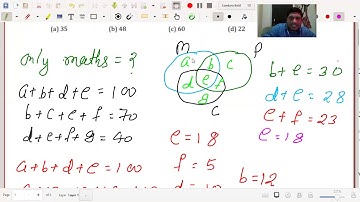 (a) 35 (b) 48 (c) 60 (d) 22
only maths = ?
M P
a b c
d e f
g
C
a+b+d+e = 100
b+c+e+f = 70
d+e+f+g = 40
b+e = 30
d+e = 28
e+f = 23
e = 18
e = 18
f = 5
b = 12
a+b+d+e = 100